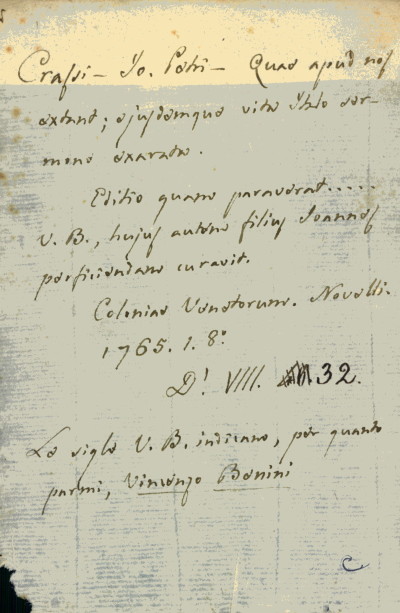 Crassi - Jo. Petri - Quae apud nos
extant; ejusdemque vita Italo ser-
mone exarata.
Editio quam paraverat.....
V. B., hujus autem filius Joannes
perficiendam curavit.
Coloniae Venetorum. Novelli.
1765. 1. 8.°
D! VIII. 32.
Le sigle V. B. indicano, per quanto
parmi, Vincenzo Benini
C